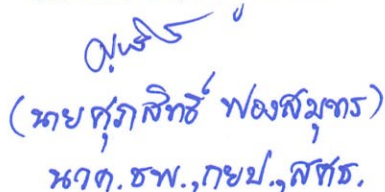 (นายศุภสิทธิ์ ฟองสมุทร)
นวค.ชพ.,กยป.,สศธ.